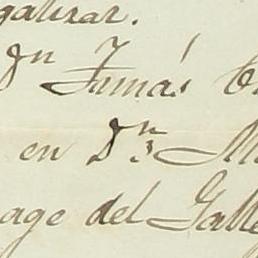 galizar.
Dn Tomás
en Dn
age del Galle